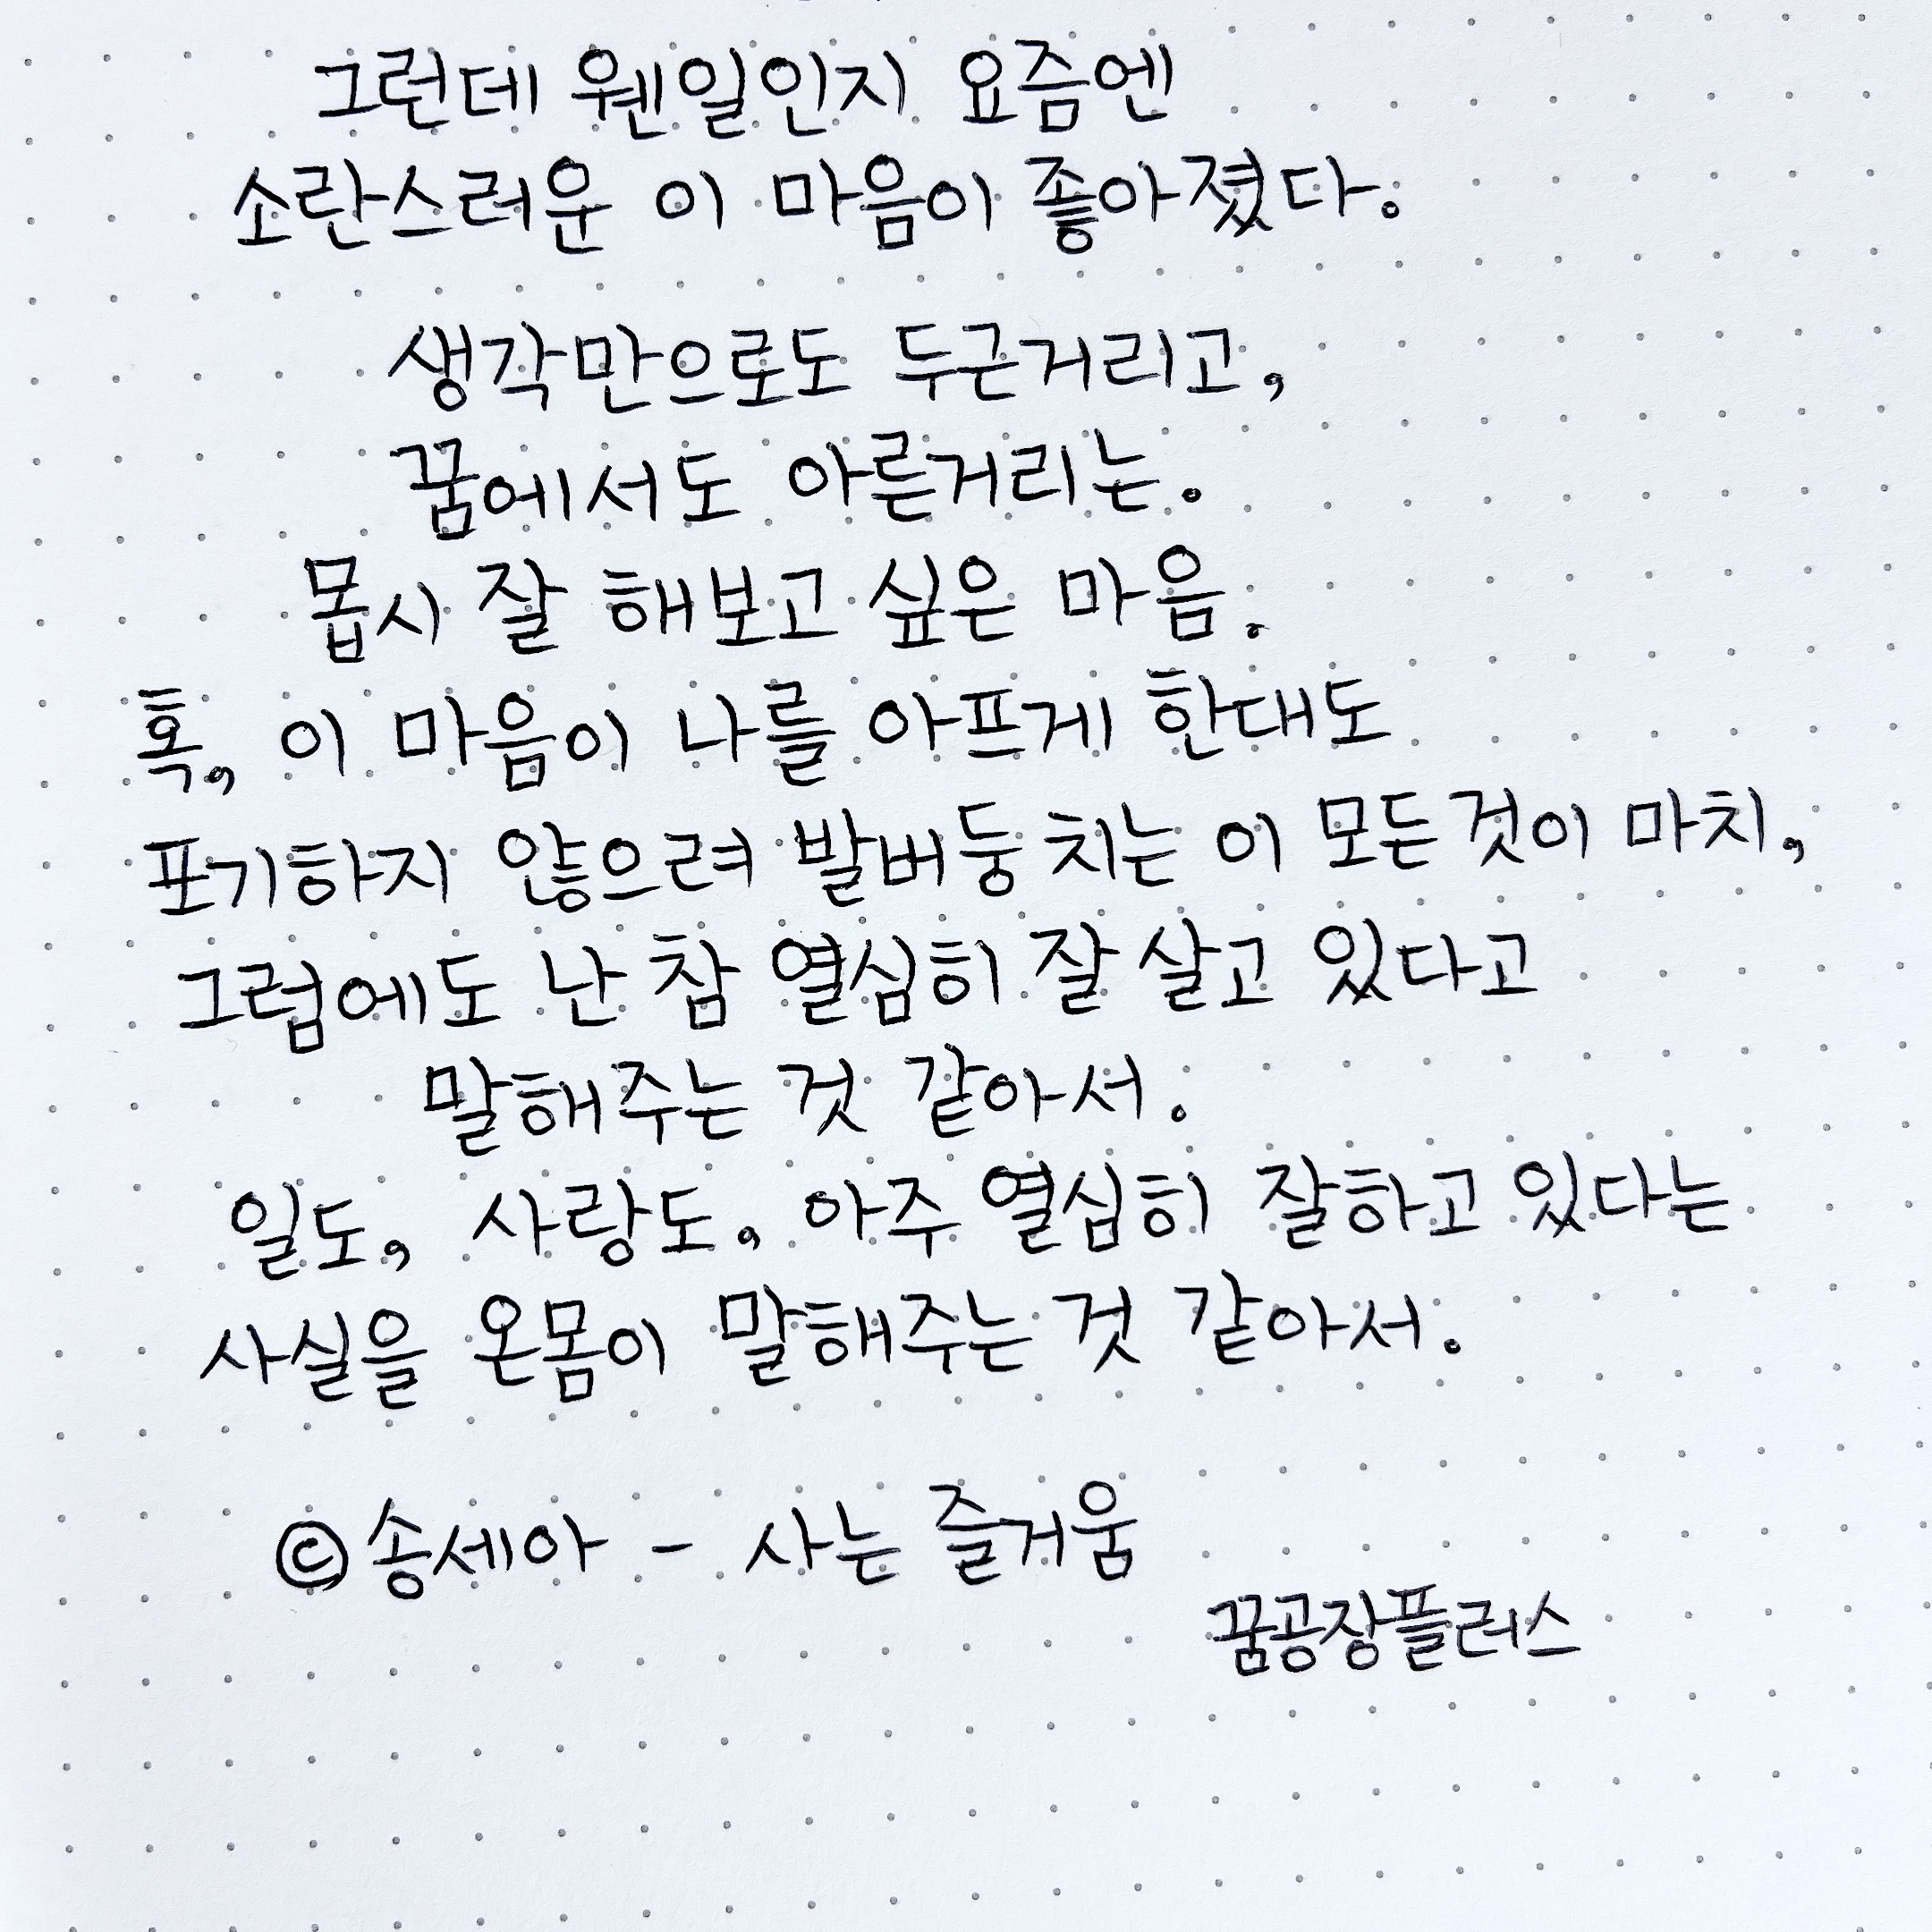 그런데 웬일인지 요즘엔
소란스러운 이 마음이 좋아졌다.
생각만으로도 두근거리고,
꿈에서도 아른거리는.
몹시 잘 해보고 싶은 마음.
혹, 이 마음이 나를 아프게 한대도
포기하지 않으려 발버둥 치는 이 모든 것이 마치,
그럼에도 난 참 열심히 잘 살고 있다고
말해주는 것 같아서.
일도, 사랑도, 아주 열심히 잘하고 있다는
사실을 온몸이 말해주는 것 같아서.
©송세아 - 사는 즐거움
꿈공장플러스